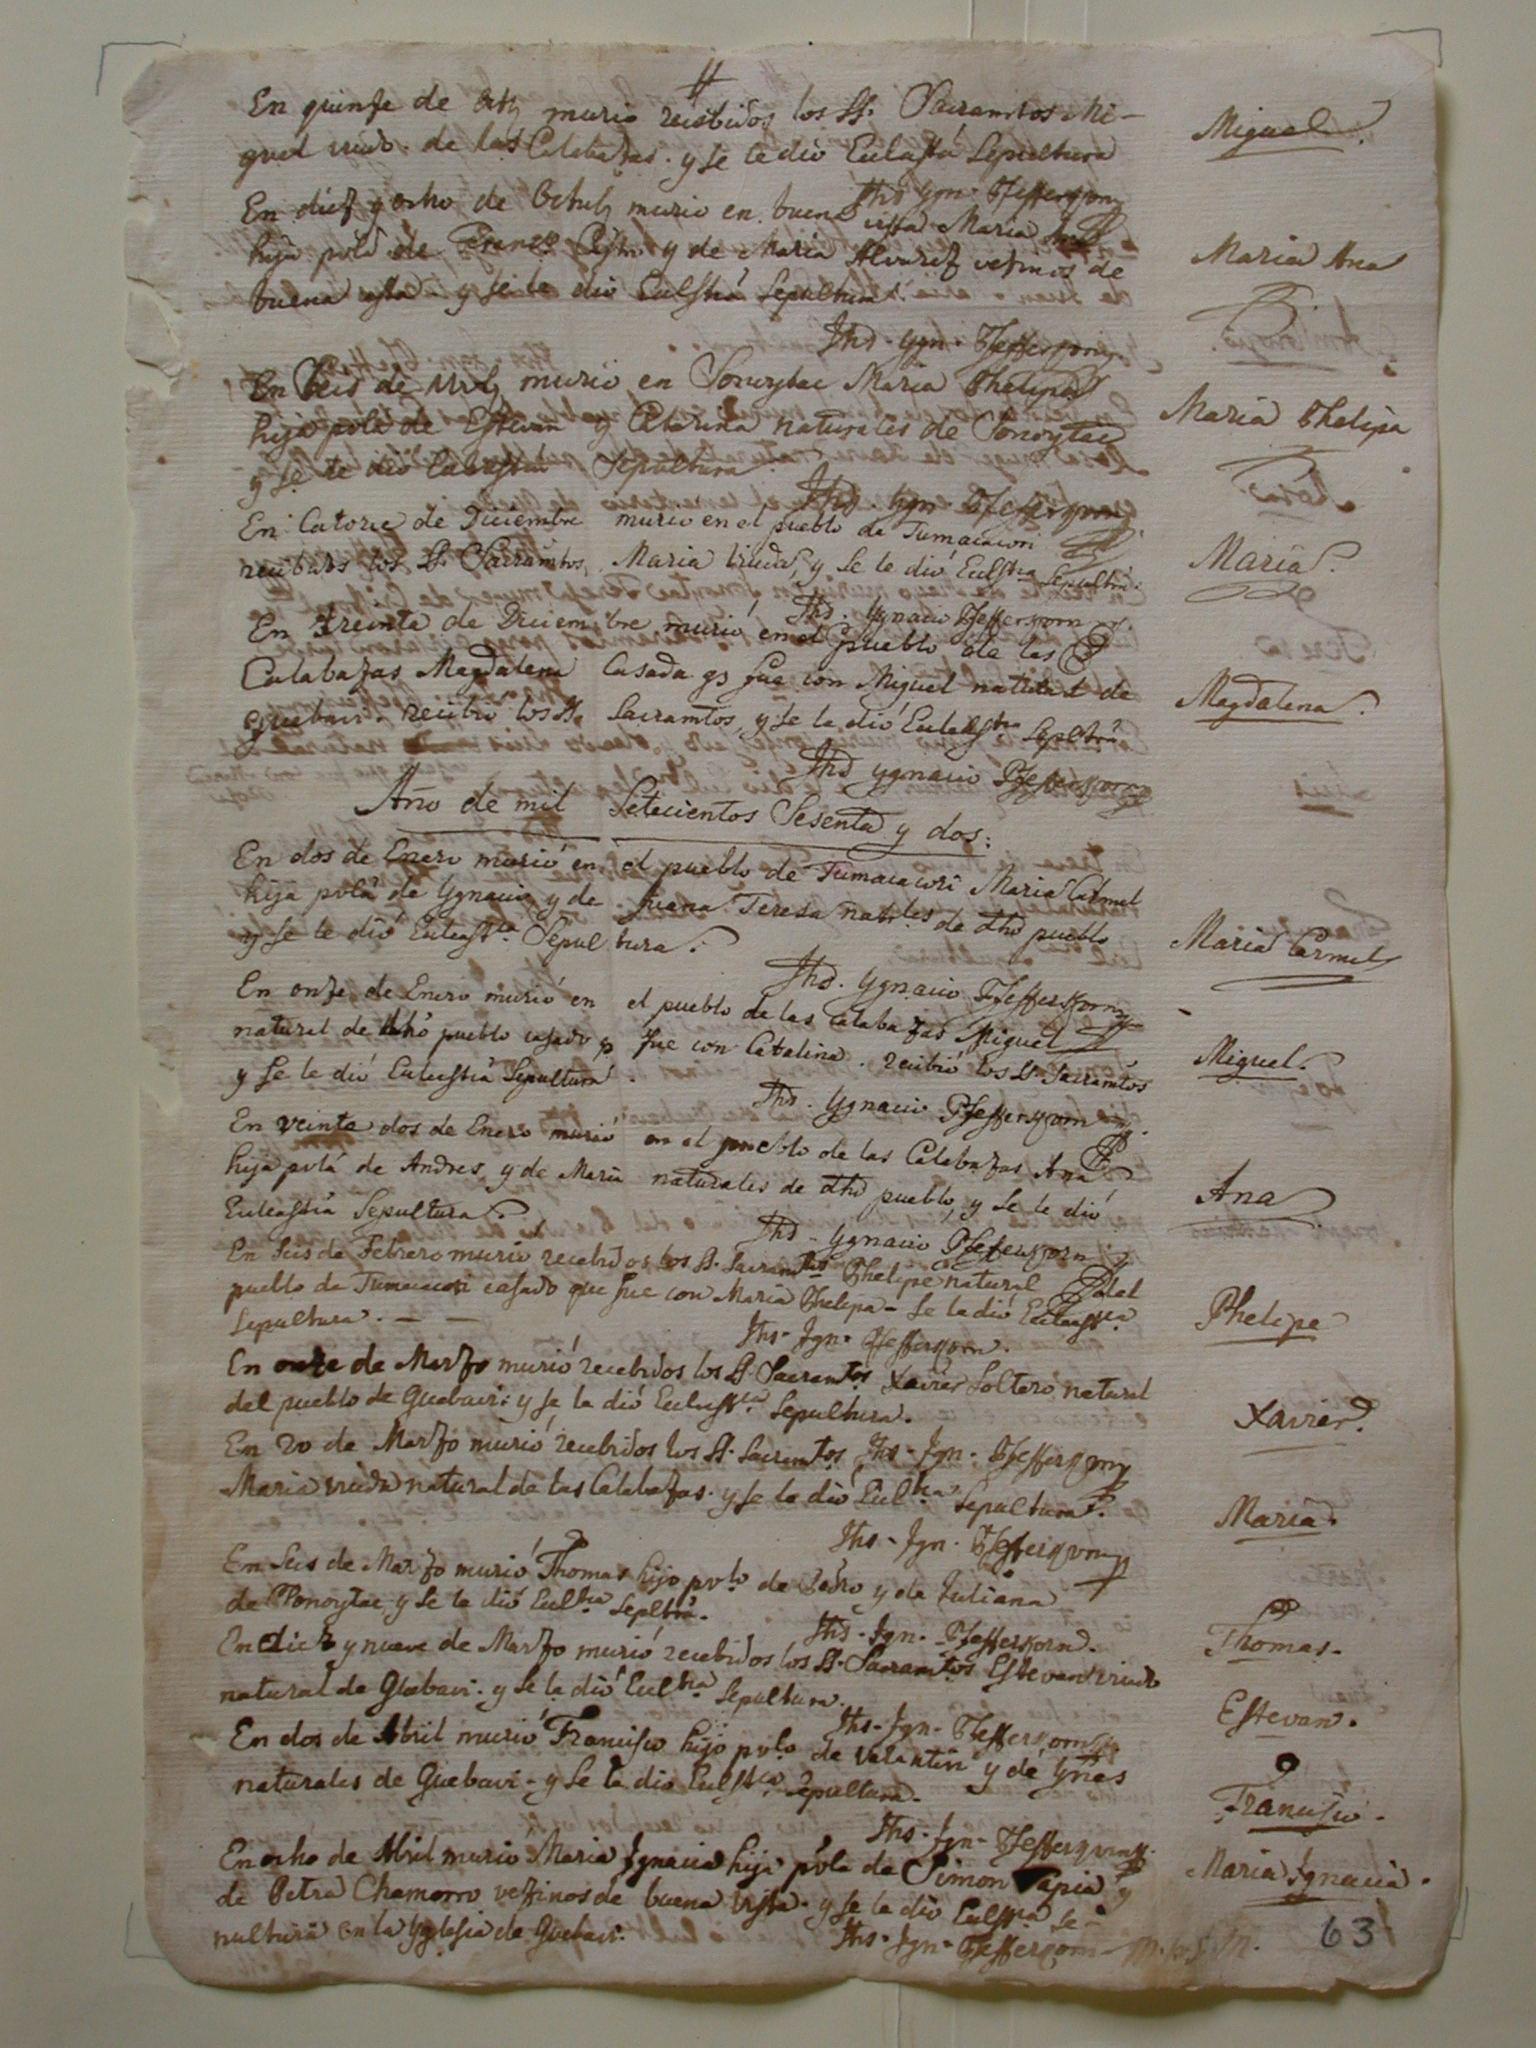 En quinze de Octe murio recibidos los Ss. Sacramtos Mi-
guel viudo de las Calabazas. y se le dio Eclesta Sepultura
Miguel.
Jhs Ygn. Pfefferkorn
En diez y ocho de Octub murio en buena vista Maria Ana
hija pola de Franco y de Maria Alvarez vezinos de
buena vista y se le dio Eclstica Sepultura.
Maria Ana
Jhs. Ygn. Pfefferkorn
En Seis de Nove murio en Sonoytac Maria Phelipa
hija pola de Estevan y Catarina naturales de Sonoytac
y se le dio Sepultura
Maria Phelipa
Jhs. Ygn. Pfefferkorn
En Catorze de Diciembre murio en el pueblo de Tumacacori
recibidos los Ss. Sacramtos, Maria viuda, y se le dió Eclstca Sepultra.
Maria.
Jhs. Ygnacio Pfefferkorn
En Treinta de Diciembre murió en el pueblo de las
Calabazas Magdalena Casada q fue con Miguel natural de
Guebavi. recibió los Ss. Sacramtos, y se le dió Eclesstca Sepltra.
Magdalena.
Jhs Ygnacio Pfefferkorn
Año de mil Setecientos Sesenta y dos.
En dos de Enero murió en el pueblo de Tumacacori Maria Carmel
hija pola de Ygnacio, y de Juana Teresa natrles de dho pueblo
y se le dió Ecleastca Sepultura.
Maria Carmel
Jhs. Ygnacio Pfefferkorn
En onze de Enero murió en el pueblo de las Calabazas Miguel
natural de dho pueblo casado q fue con Catalina. recibió los Ss. Sacramtos
y se le dió Eclestica Sepultura.
Miguel.
Jhs. Ygnacio Pfefferkorn
En veinte dos de Enero murió en el pueblo de las Calabazas Ana
hija pola de Andres, y de Maria naturales de dho pueblo, y se le dió
Ecleastica Sepultura.
Ana
Jhs. Ygnacio Pfefferkorn
En Seis de Febrero murió recebidos los Ss. Sacramtos Phelipe natural del
pueblo de Tumacacori casado que fue con Maria Phelipa - se le dió Ecleastca
Sepultura. — —
Phelipe
Jhs. Ign. Pfefferkorn.
En onze de Marzo murió recebidos los Ss. Sacramtos Xavier Soltero natural
del pueblo de Guebavi: y se le dió Eclesstca Sepultura.
Xavier.
Jhs - Ign. Pfefferkorn
En 20 de Marzo murió recebidos los Ss. Sacramtos
Maria viuda natural de las Calabazas. y se le dió Ecltca Sepultura.
Maria.
Jhs - Ign. Pfefferkorn
En Seis de Marzo murió Thomas hijo pvlo de Pedro y de Juliana
de Sonoytac y se le dió Ecltca Sepltra.
Thomas.
Jhs - Ign. Pfefferkorn.
En diez y nueve de Marzo murió recebidos los Ss. Sacramtos Estevan viudo
natural de Guebavi. y se le dió Ecltca Sepultura.
Estevan.
Jhs - Ign - Pfefferkorn
En dos de Abril murió Francisco hijo pvlo de Valantin y de Ynes
naturales de Guebavi - y se le dió Eclstca Sepultura.
Francisco.
Jhs - Ign - Pfefferkorn
En ocho de Abril murió Maria Ignacia hija pvla de Simon Tapia y
de Petra Chamorro vezinos de buena vista. y se le dió Eclstca Se-
pultura en la Yglesia de Guebavi.
Maria Ignacia.
Jhs - Ign - Pfefferkorn
63